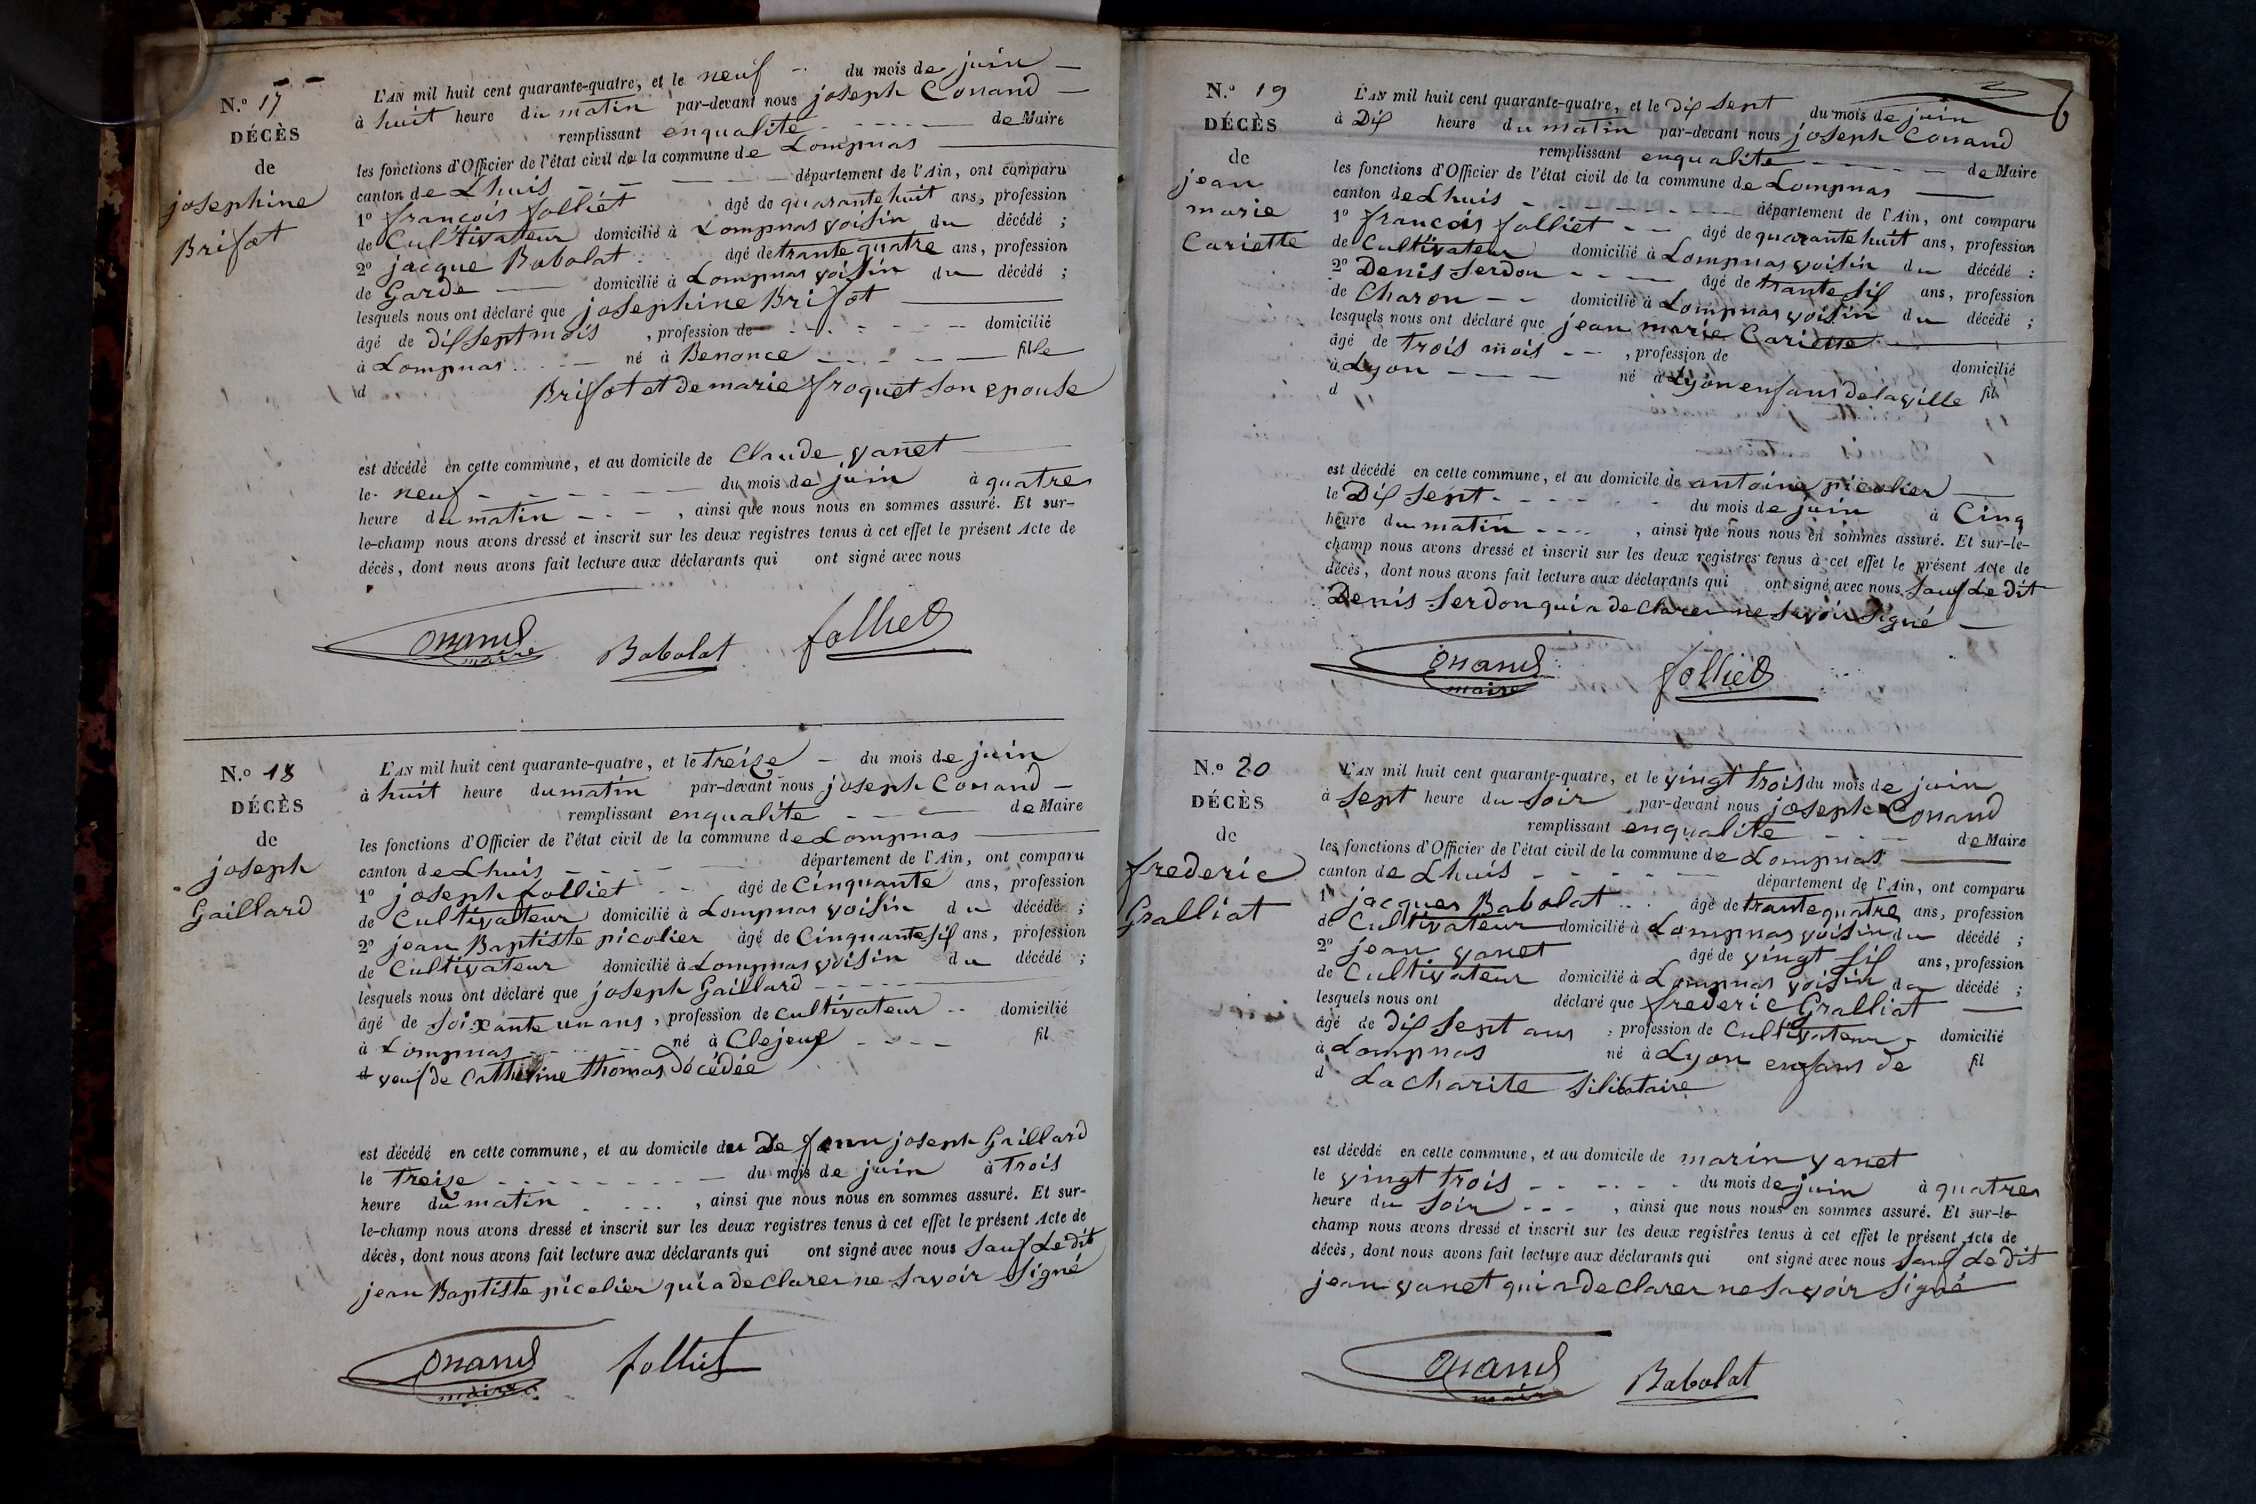 N.o 17
DÉCÈS
de
josephine
Brifot
L'AN mil huit cent quarante-quatre, et le neuf du mois de juin
à huit heure du matin par-devant nous joseph Conand
remplissant enqualite de Maire
les fonctions d'Officier de l'état civil de la commune de Lompnas
canton de Lhuis département de l'Ain, ont comparu
1o francois folliet âgé de quarante huit ans, profession
de Cultivateur domicilié à Lompnas voisin du décédé ;
2o jacque Babolat âgé de trante quatre ans, profession
de Garde domicilié à Lompnas voisin du décédé ;
lesquels nous ont déclaré que josephine Brifot
âgé de dissept mois , profession de domicilié
à Lompnas né à Benonce fille
d Brifot et de marie froquet son epouse
est décédé en cette commune, et au domicile de Claude vanet
le neuf du mois de juin à quatres
heure du matin , ainsi que nous nous en sommes assuré. Et sur-
le-champ nous avons dressé et inscrit sur les deux registres tenus à cet effet le présent Acte de
décès, dont nous avons fait lecture aux déclarants qui ont signé avec nous
Conand
maire
Babolat
folliet
N.o 18
DÉCÈS
de
joseph
Gaillard
L'AN mil huit cent quarante-quatre, et le treise du mois de juin
à huit heure du matin par-devant nous joseph Conand
remplissant enqualite de Maire
les fonctions d'Officier de l'état civil de la commune de Lompnas
canton de Lhuis département de l'Ain, ont comparu
1o joseph folliet âgé de Cinquante ans, profession
de Cultivateur domicilié à Lompnas voisin du décédé ;
2o jean Baptiste picolier âgé de Cinquante six ans, profession
de Cultivateur domicilié à Lompnas voisin du décédé ;
lesquels nous ont déclaré que joseph Gaillard
âgé de soixante un ans , profession de cultivateur domicilié
à Lompnas né à Clejeux fil
d veuf de Catherine thomas décédée
est décédé en cette commune, et au domicile du De feu joseph Gaillard
le treise du mois de juin à trois
heure du matin , ainsi que nous nous en sommes assuré. Et sur-
le-champ nous avons dressé et inscrit sur les deux registres tenus à cet effet le présent Acte de
décès, dont nous avons fait lecture aux déclarants qui ont signé avec nous sauf Le dit
jean Baptiste picolier qui a declarer ne savoir signé
Conand
maire
folliet
6
N.o 19
DÉCÈS
de
jean
marie
Cariette
L'AN mil huit cent quarante-quatre, et le Dix sept du mois de juin
à Dix heure du matin par-devant nous joseph Conand
remplissant enqualite de Maire
les fonctions d'Officier de l'état civil de la commune de Lompnas
canton de Lhuis département de l'Ain, ont comparu
1o francois folliet âgé de quarante huit ans, profession
de Cultivateur domicilié à Lompnas voisin du décédé :
2o Denis Serdon âgé de trante six ans, profession
de Charon domicilié à Lompnas voisin du décédé ;
lesquels nous ont déclaré que jean marie Cariette
âgé de trois mois , profession de domicilié
à Lyon né à Lyon enfans de la ville fil
d
est décédé en cette commune, et au domicile de antoine picolier
le Dix sept du mois de juin à Cinq
heure du matin , ainsi que nous nous en sommes assuré. Et sur-le-
champ nous avons dressé et inscrit sur les deux registres tenus à cet effet le présent Acte de
décès, dont nous avons fait lecture aux déclarants qui ont signé avec nous sauf Le dit
Denis Serdon qui a declarer ne savoir signé
Conand
maire
folliet
N.o 20
DÉCÈS
de
frederic
Gralliat
L'AN mil huit cent quarante-quatre, et le vingt trois du mois de juin
à sept heure du soir par-devant nous joseph Conand
remplissant enqualite de Maire
les fonctions d'Officier de l'état civil de la commune de Lompnas
canton de Lhuis département de l'Ain, ont comparu
1o jacques Babolat âgé de trante quatre ans, profession
de Cultivateur domicilié à Lompnas voisin du décédé ;
2o jean vanet âgé de vingt six ans, profession
de Cultivateur domicilié à Lompnas voisin du décédé ;
lesquels nous ont déclaré que frederic Gralliat
âgé de dix sept ans , profession de Cultivateur domicilié
à Lompnas né à Lyon enfans de fil
d La charite silibataire
est décédé en cette commune, et au domicile de marin vanet
le vingt trois du mois de juin à quatres
heure du soir , ainsi que nous nous en sommes assuré. Et sur-le-
champ nous avons dressé et inscrit sur les deux registres tenus à cet effet le présent Acte de
décès, dont nous avons fait lecture aux déclarants qui ont signé avec nous sauf Le dit
jean vanet qui a declarer ne savoir signé
Conand
maire
Babolat